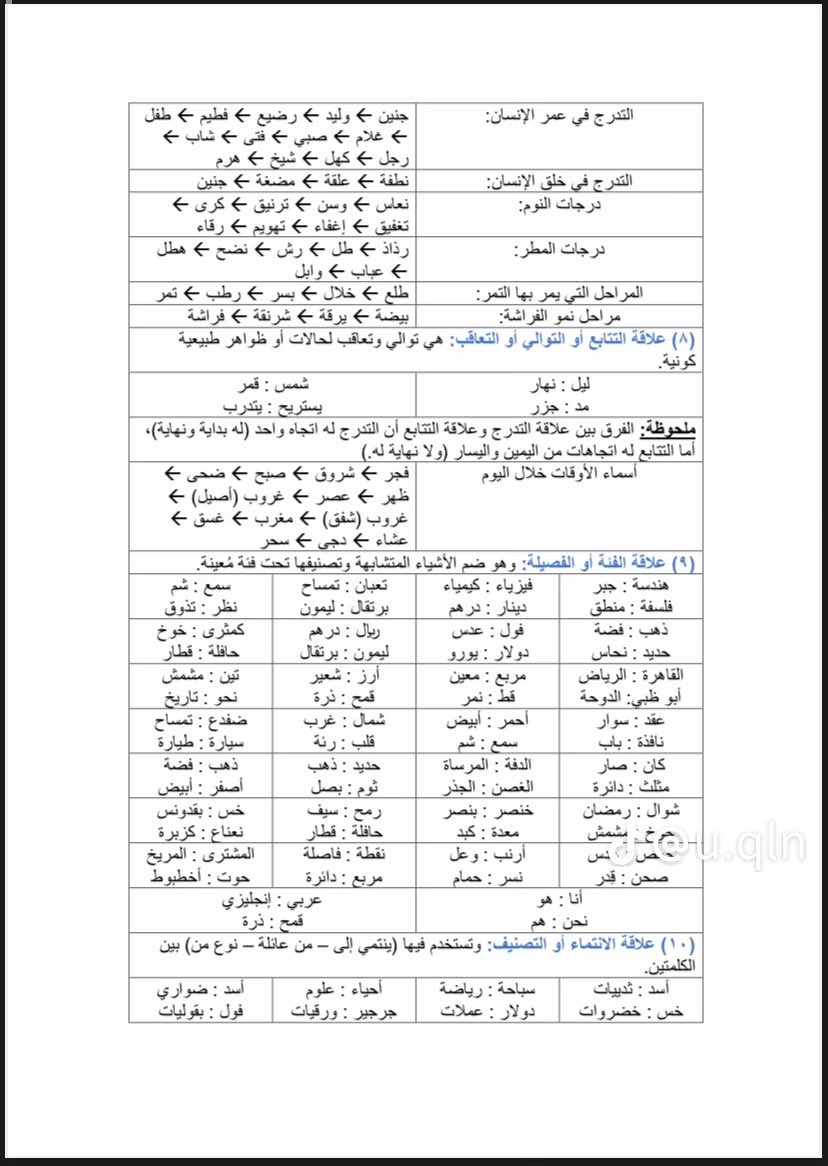 التدرج في عمر الإنسان: جنين ← وليد ← رضيع ← فطيم ← طفل
← غلام ← صبي ← فتى ← شاب ←
رجل ← كهل ← شيخ ← هرم
التدرج في خلق الإنسان: نطفة ← علقة ← مضغة ← جنين
درجات النوم: نعاس ← وسن ← ترنيق ← كرى ←
تغفيق ← إغفاء ← تهويم ← رقاء
درجات المطر: رذاذ ← طل ← رش ← نضح ← هطل
← عباب ← وابل
المراحل التي يمر بها التمر: طلع ← خلال ← بسر ← رطب ← تمر
مراحل نمو الفراشة: بيضة ← يرقة ← شرنقة ← فراشة
(٨) علاقة التتابع أو التوالي أو التعاقب: هي توالي وتعاقب لحالات أو ظواهر طبيعية
كونية.
ليل : نهار شمس : قمر
مد : جزر يستريح : يتدرب
ملحوظة: الفرق بين علاقة التدرج وعلاقة التتابع أن التدرج له اتجاه واحد (له بداية ونهاية)،
أما التتابع له اتجاهات من اليمين واليسار (ولا نهاية له.)
أسماء الأوقات خلال اليوم فجر ← شروق ← صبح ← ضحى ←
ظهر ← عصر ← غروب (أصيل) ←
غروب (شفق) ← مغرب ← غسق ←
عشاء ← دجى ← سحر
(٩) علاقة الفئة أو الفصيلة: وهو ضم الأشياء المتشابهة وتصنيفها تحت فئة مُعينة.
هندسة : جبر فيزياء : كيمياء تعبان : تمساح سمع : شم
فلسفة : منطق دينار : درهم برتقال : ليمون نظر : تذوق
ذهب : فضة فول : عدس ريال : درهم كمثرى : خوخ
حديد : نحاس دولار : يورو ليمون : برتقال حافلة : قطار
القاهرة : الرياض مربع : معين أرز : شعير تين : مشمش
أبو ظبي: الدوحة قط : نمر قمح : ذرة نحو : تاريخ
عقد : سوار أحمر : أبيض شمال : غرب ضفدع : تمساح
نافذة : باب سمع : شم قلب : رئة سيارة : طيارة
كان : صار الدفة : المرساة حديد : ذهب ذهب : فضة
مثلث : دائرة الغصن : الجذر ثوم : بصل أصفر : أبيض
شوال : رمضان خنصر : بنصر رمح : سيف خس : بقدونس
خوخ : مشمش معدة : كبد حافلة : قطار نعناع : كزبرة
أرنب : وعل نقطة : فاصلة المشترى : المريخ
صحن : قِدر نسر : حمام مربع : دائرة حوت : أخطبوط
@u.qln
أنا : هو عربي : إنجليزي
نحن : هم قمح : ذرة
(١٠) علاقة الانتماء أو التصنيف: وتستخدم فيها (ينتمي إلى – من عائلة – نوع من) بين
الكلمتين.
أسد : ثدييات سباحة : رياضة أحياء : علوم أسد : ضواري
خس : خضروات دولار : عملات جرجير : ورقيات فول : بقوليات